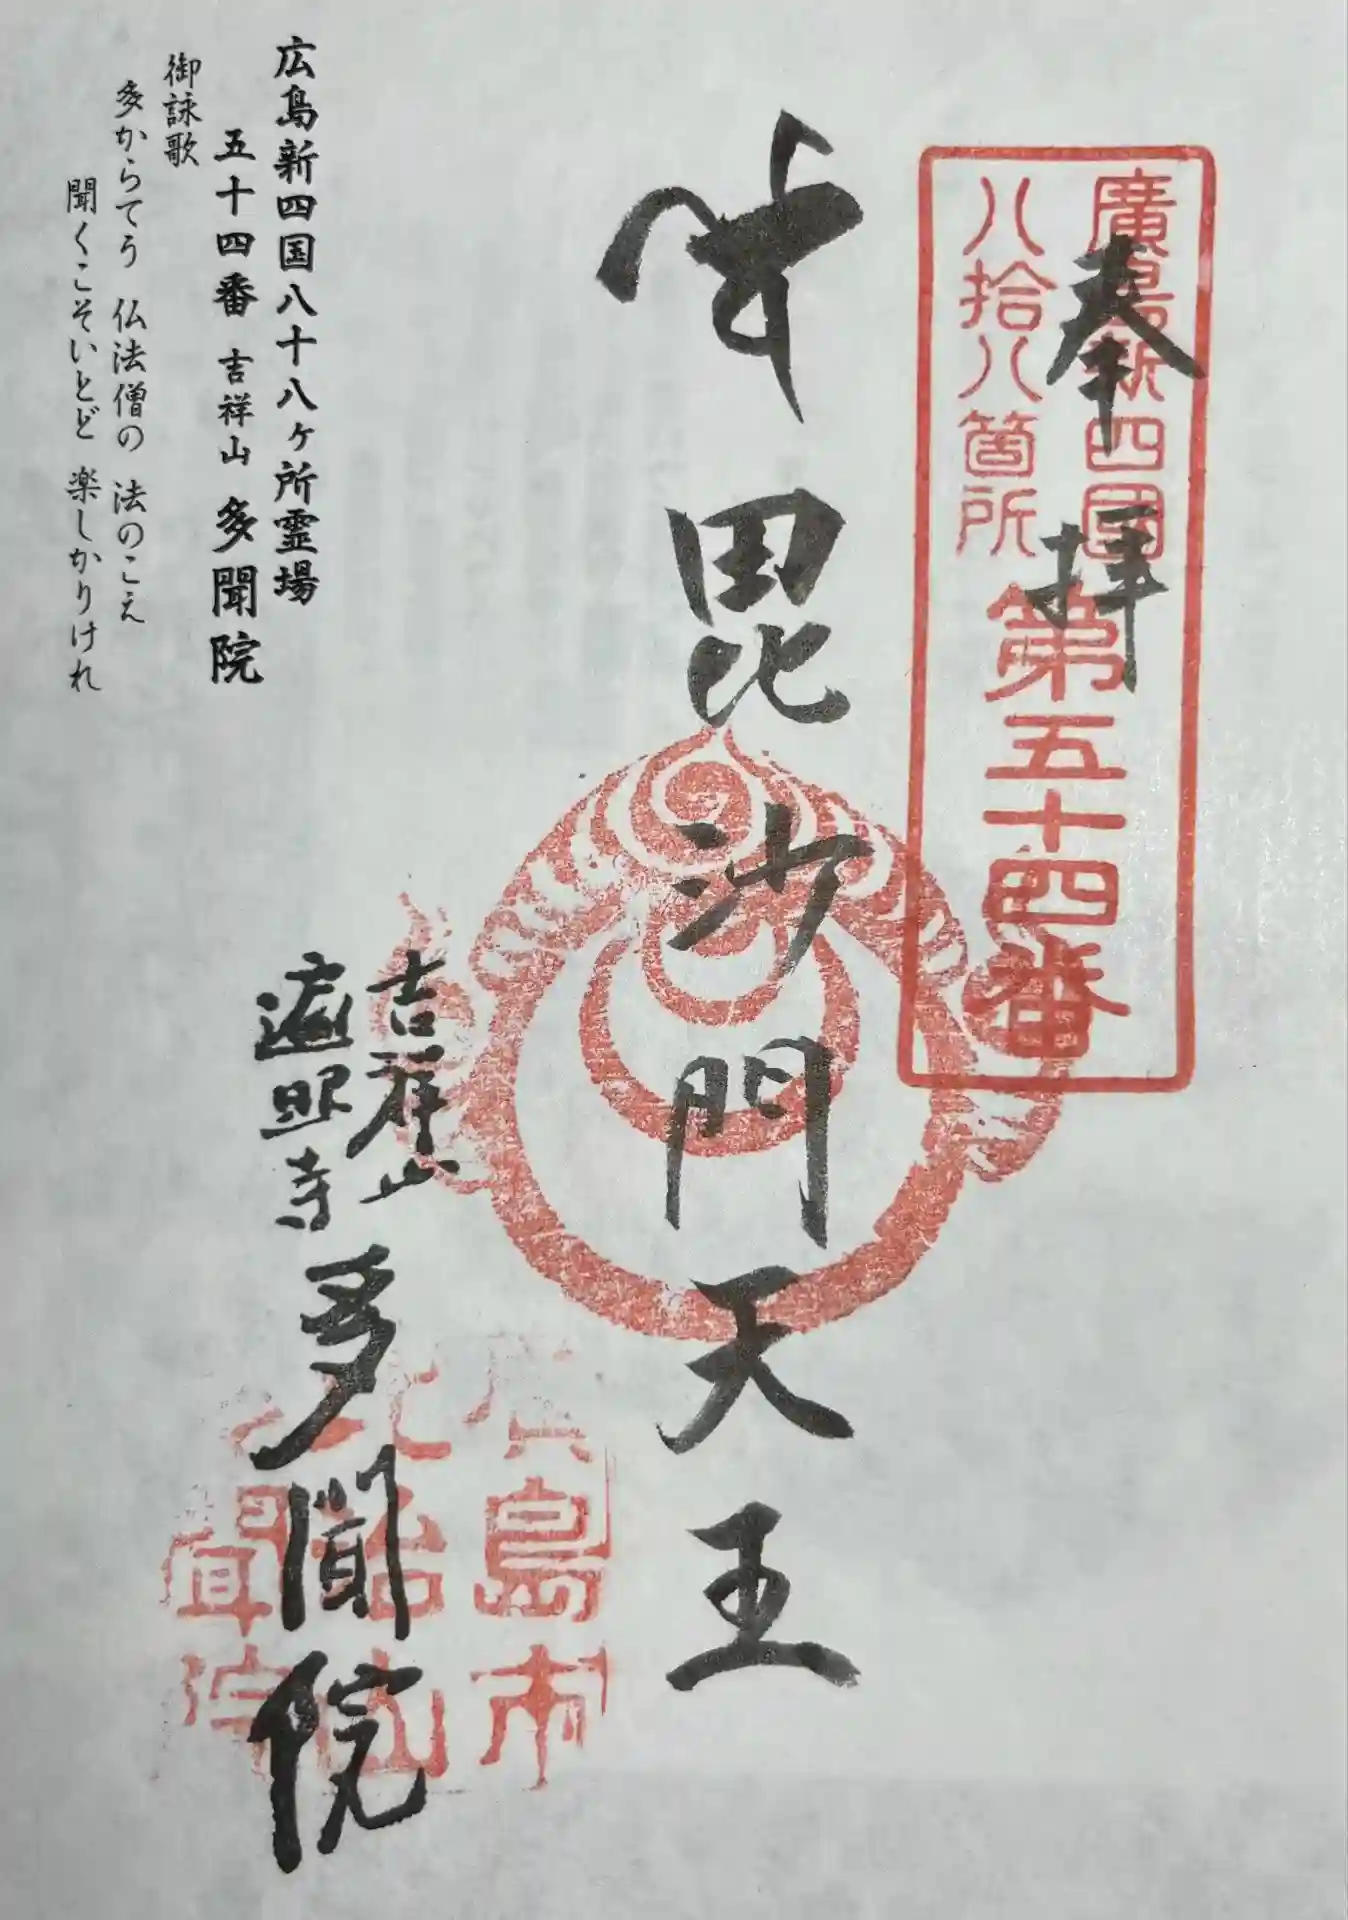 奉拝
廣島新四國
八拾八箇所
第五十四番
毘沙門天王
吉祥山
遍照寺
多聞院
廣島市
比治山
聞院
広島新四国八十八ヶ所霊場
五十四番 吉祥山 多聞院
御詠歌
多からてう 仏法僧の 法のこえ
聞くこそいとど 楽しかりけれ